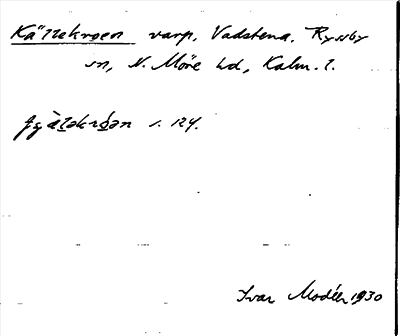 Kättekroen varp, Vadstena, Ryssby
sn, N. Möre hd, Kalm. l.
s. 124.
Ivar Modéer 1930